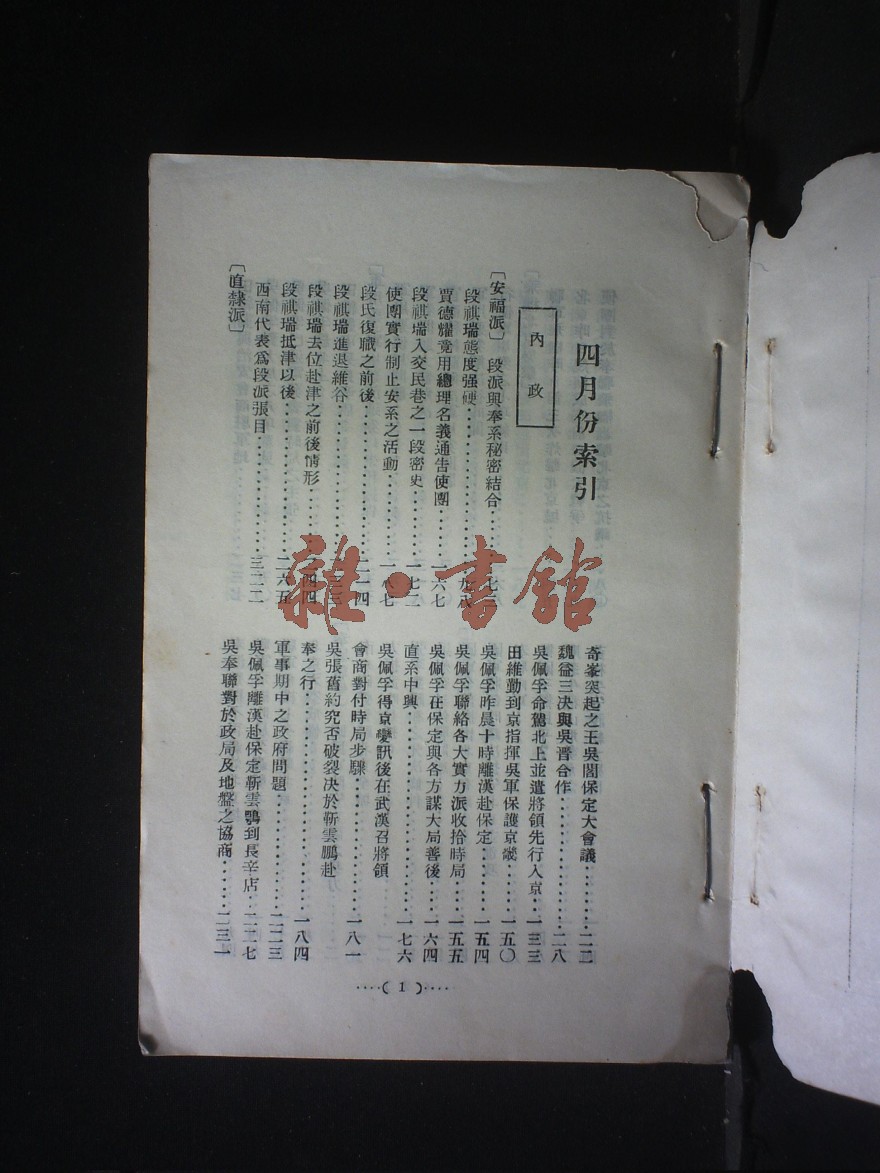 四月份索引
內政
〔安福派〕 段派與奉系秘密結合
段祺瑞態度强硬
賈德耀竟用總理名義通告使團 一六七
段祺瑞入交民巷之一段密史 一七二
使團實行制止安系之活動 一八七
段氏復職之前後
段祺瑞進退維谷
段祺瑞去位赴津之前後情形
段祺瑞抵津以後 二六五
西南代表爲段派張目 三二二
〔直隸派〕
奇峯突起之王吳閻保定大會議 二二
魏益三决與吳晋合作 二八
吳佩孚命駕北上並遣將領先行入京 一三三
田維勤到京指揮吳軍保護京畿 一五〇
吳佩孚昨晨十時離漢赴保定 一五四
吳佩孚聯絡各大實力派收拾時局 一五五
吳佩孚在保定與各方謀大局善後 一六四
直系中興 一七六
吳佩孚得京變訊後在武漢召將領
會商對付時局步驟 一八一
吳張舊約究否破裂决於靳雲鵬赴
奉之行 一八四
軍事期中之政府問題 二二三
吳佩孚離漢赴保定靳雲鶚到長辛店 二二七
吳奉聯對於政局及地盤之協商 二三一
(1)
雜·書館